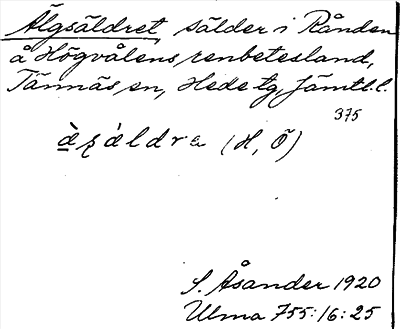 Älgsäldret, sälder i Rånden
å Högvålens renbetesland,
Tännäs sn, Hede tg, Jämtl. l.
375
(H, Ö)
S. Åsander 1920
Ulma 755:16:25